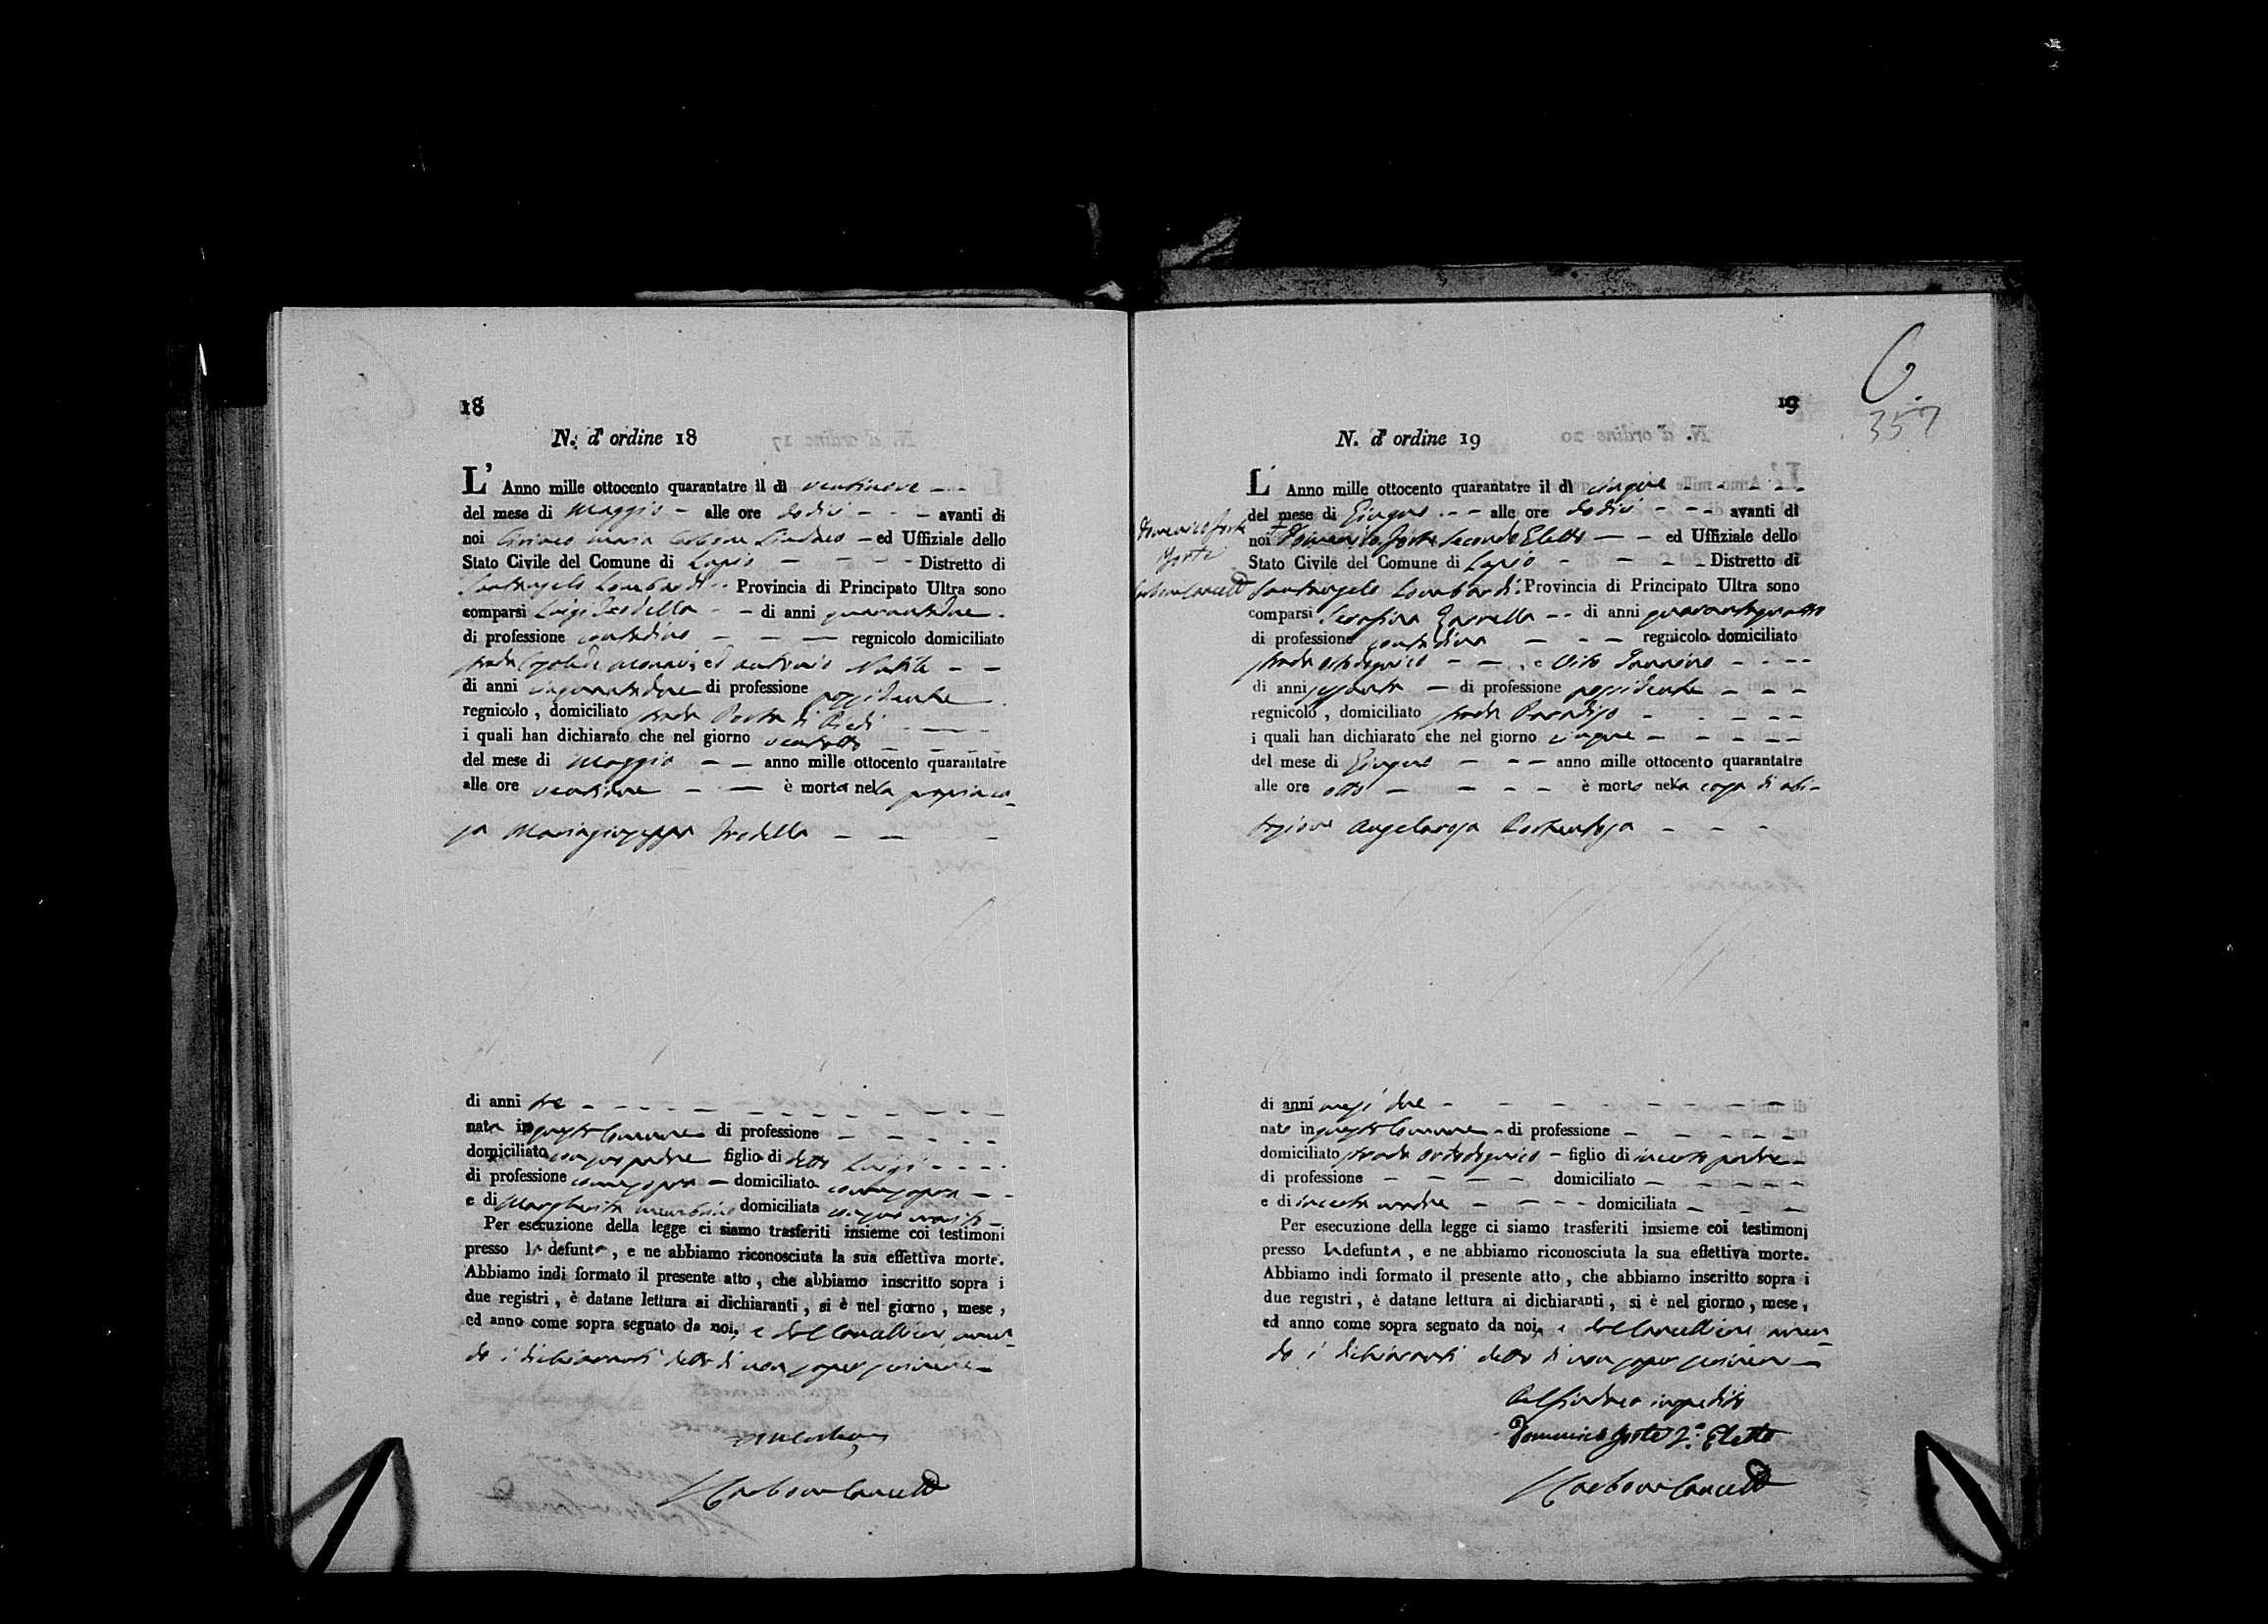 18
N. d' ordine 18
L' Anno mille ottocento quarantatre il dì ventinove
del mese di Maggio alle ore dodici avanti di
noi Maria Carbone Sindaco ed Uffiziale dello
Stato Civile del Comune di Lapio Distretto di
Santangelo Lombardi Provincia di Principato Ultra sono
comparsi Luigi di anni quarantadue
di professione contadino regnicolo domiciliato
strada ed Antonio
di anni cinquantadue di professione possidente
regnicolo, domiciliato strada Porta di Piedi
i quali han dichiarato che nel giorno ventotto
del mese di Maggio anno mille ottocento quarantatre
alle ore ventidue è morta nella propria ca-
sa Mariagiuseppa
di anni tre
nata in questo Comune di professione
domiciliato con suo padre figlio di detto Luigi
di professione come sopra domiciliato come sopra
e di Margherita domiciliata con suo marito
Per esecuzione della legge ci siamo trasferiti insieme coi testimonj
presso la defunta, e ne abbiamo riconosciuta la sua effettiva morte.
Abbiamo indi formato il presente atto, che abbiamo inscritto sopra i
due registri, è datane lettura ai dichiaranti, si è nel giorno, mese,
ed anno come sopra segnato da noi, e dal Cancelliere aven-
do i dichiaranti detto di non saper scrivere
Carbone Cancell
6.
357
19
N. d' ordine 19
L' Anno mille ottocento quarantatre il dì cinque
del mese di Giugno alle ore dodici avanti di
noi + Domenico Forte Secondo Eletto ed Uffiziale dello
Stato Civile del Comune di Lapio Distretto di
Santangelo Lombardi Provincia di Principato Ultra sono
comparsi Serafina di anni quarantaquattro
di professione contadina regnicolo domiciliato
strada e Vito
di anni sessanta di professione possidente
regnicolo, domiciliato strada Paradiso
i quali han dichiarato che nel giorno cinque
del mese di Giugno anno mille ottocento quarantatre
alle ore otto è morto nella casa di abi-
tazione Angelarosa
di anni mesi due
nato in questo Comune di professione
domiciliato strada figlio di incerto padre
di professione domiciliato
e di incerta madre domiciliata
Per esecuzione della legge ci siamo trasferiti insieme coi testimonj
presso la defunta, e ne abbiamo riconosciuta la sua effettiva morte.
Abbiamo indi formato il presente atto, che abbiamo inscritto sopra i
due registri, è datane lettura ai dichiaranti, si è nel giorno, mese,
ed anno come sopra segnato da noi, e dal Cancelliere aven-
do i dichiaranti detto di non saper scrivere
Pel Sindaco impedito
Domenico Forte 2.° Eletto
Carbone Cancell
Domenico Forte
Forte
Carbone Cancell